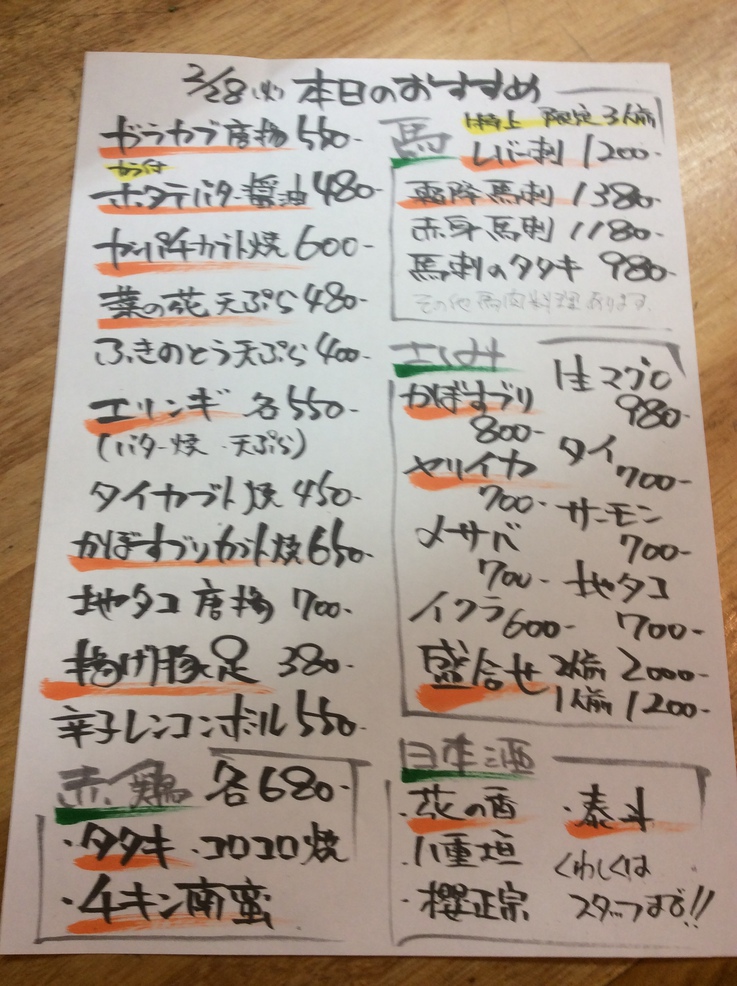 2/28(火) 本日のおすすめ
ガラカブ唐揚 550-
カラ付
ホタテバター醤油 480-
カンパチカブト焼 600-
菜の花天ぷら 480-
ふきのとう天ぷら 400-
エリンギ 各550-
(バター焼・天ぷら)
タイカブト焼 450-
かぼすブリカブト焼 650-
地タコ唐揚 700-
揚げ豚足 380-
辛子レンコンボール 550-
赤鶏 各680-
・タタキ ・コロコロ焼
・チキン南蛮
馬
特上 限定3人前
レバー刺 1200-
霜降馬刺 1380-
赤身馬刺 1180-
馬刺のタタキ 980-
その他馬肉料理あります
さしみ
かぼすブリ
800-
ヤリイカ
700-
〆サバ
700-
イクラ
600-
生マグロ
980-
タイ
700-
サーモン
700-
地タコ
700-
盛合せ 2人前 2000-
1人前 1200-
日本酒
・花の香 ・泰斗
・八重垣
・櫻正宗
くわしくは
スタッフまで!!